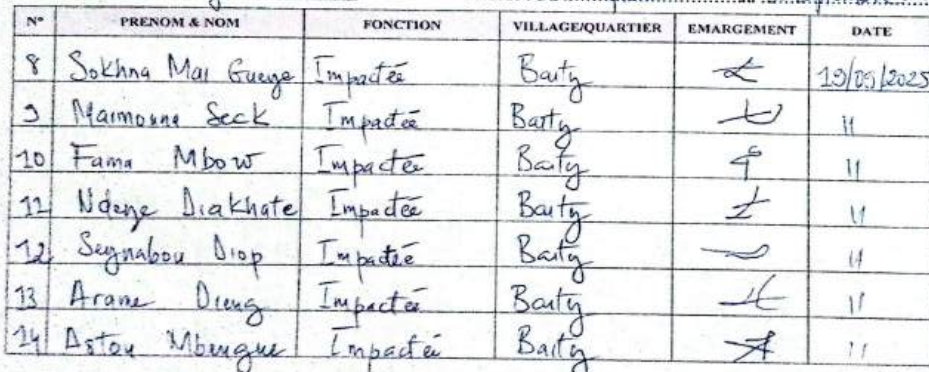 N° PRENOM & NOM FONCTION VILLAGE/QUARTIER EMARGEMENT DATE
8 Sokhna Mai Gueye Impactée Baity 19/09/2025
9 Maimouna Seck Impactée Baity 11
10 Fama Mbow Impactée Baity 11
11 Ndeye Diakhate Impactée Baity 11
12 Seynabou Diop Impactée Baity 11
13 Arame Dieng Impactée Baity 11
14 Astou Mbengue Impactée Baity 11